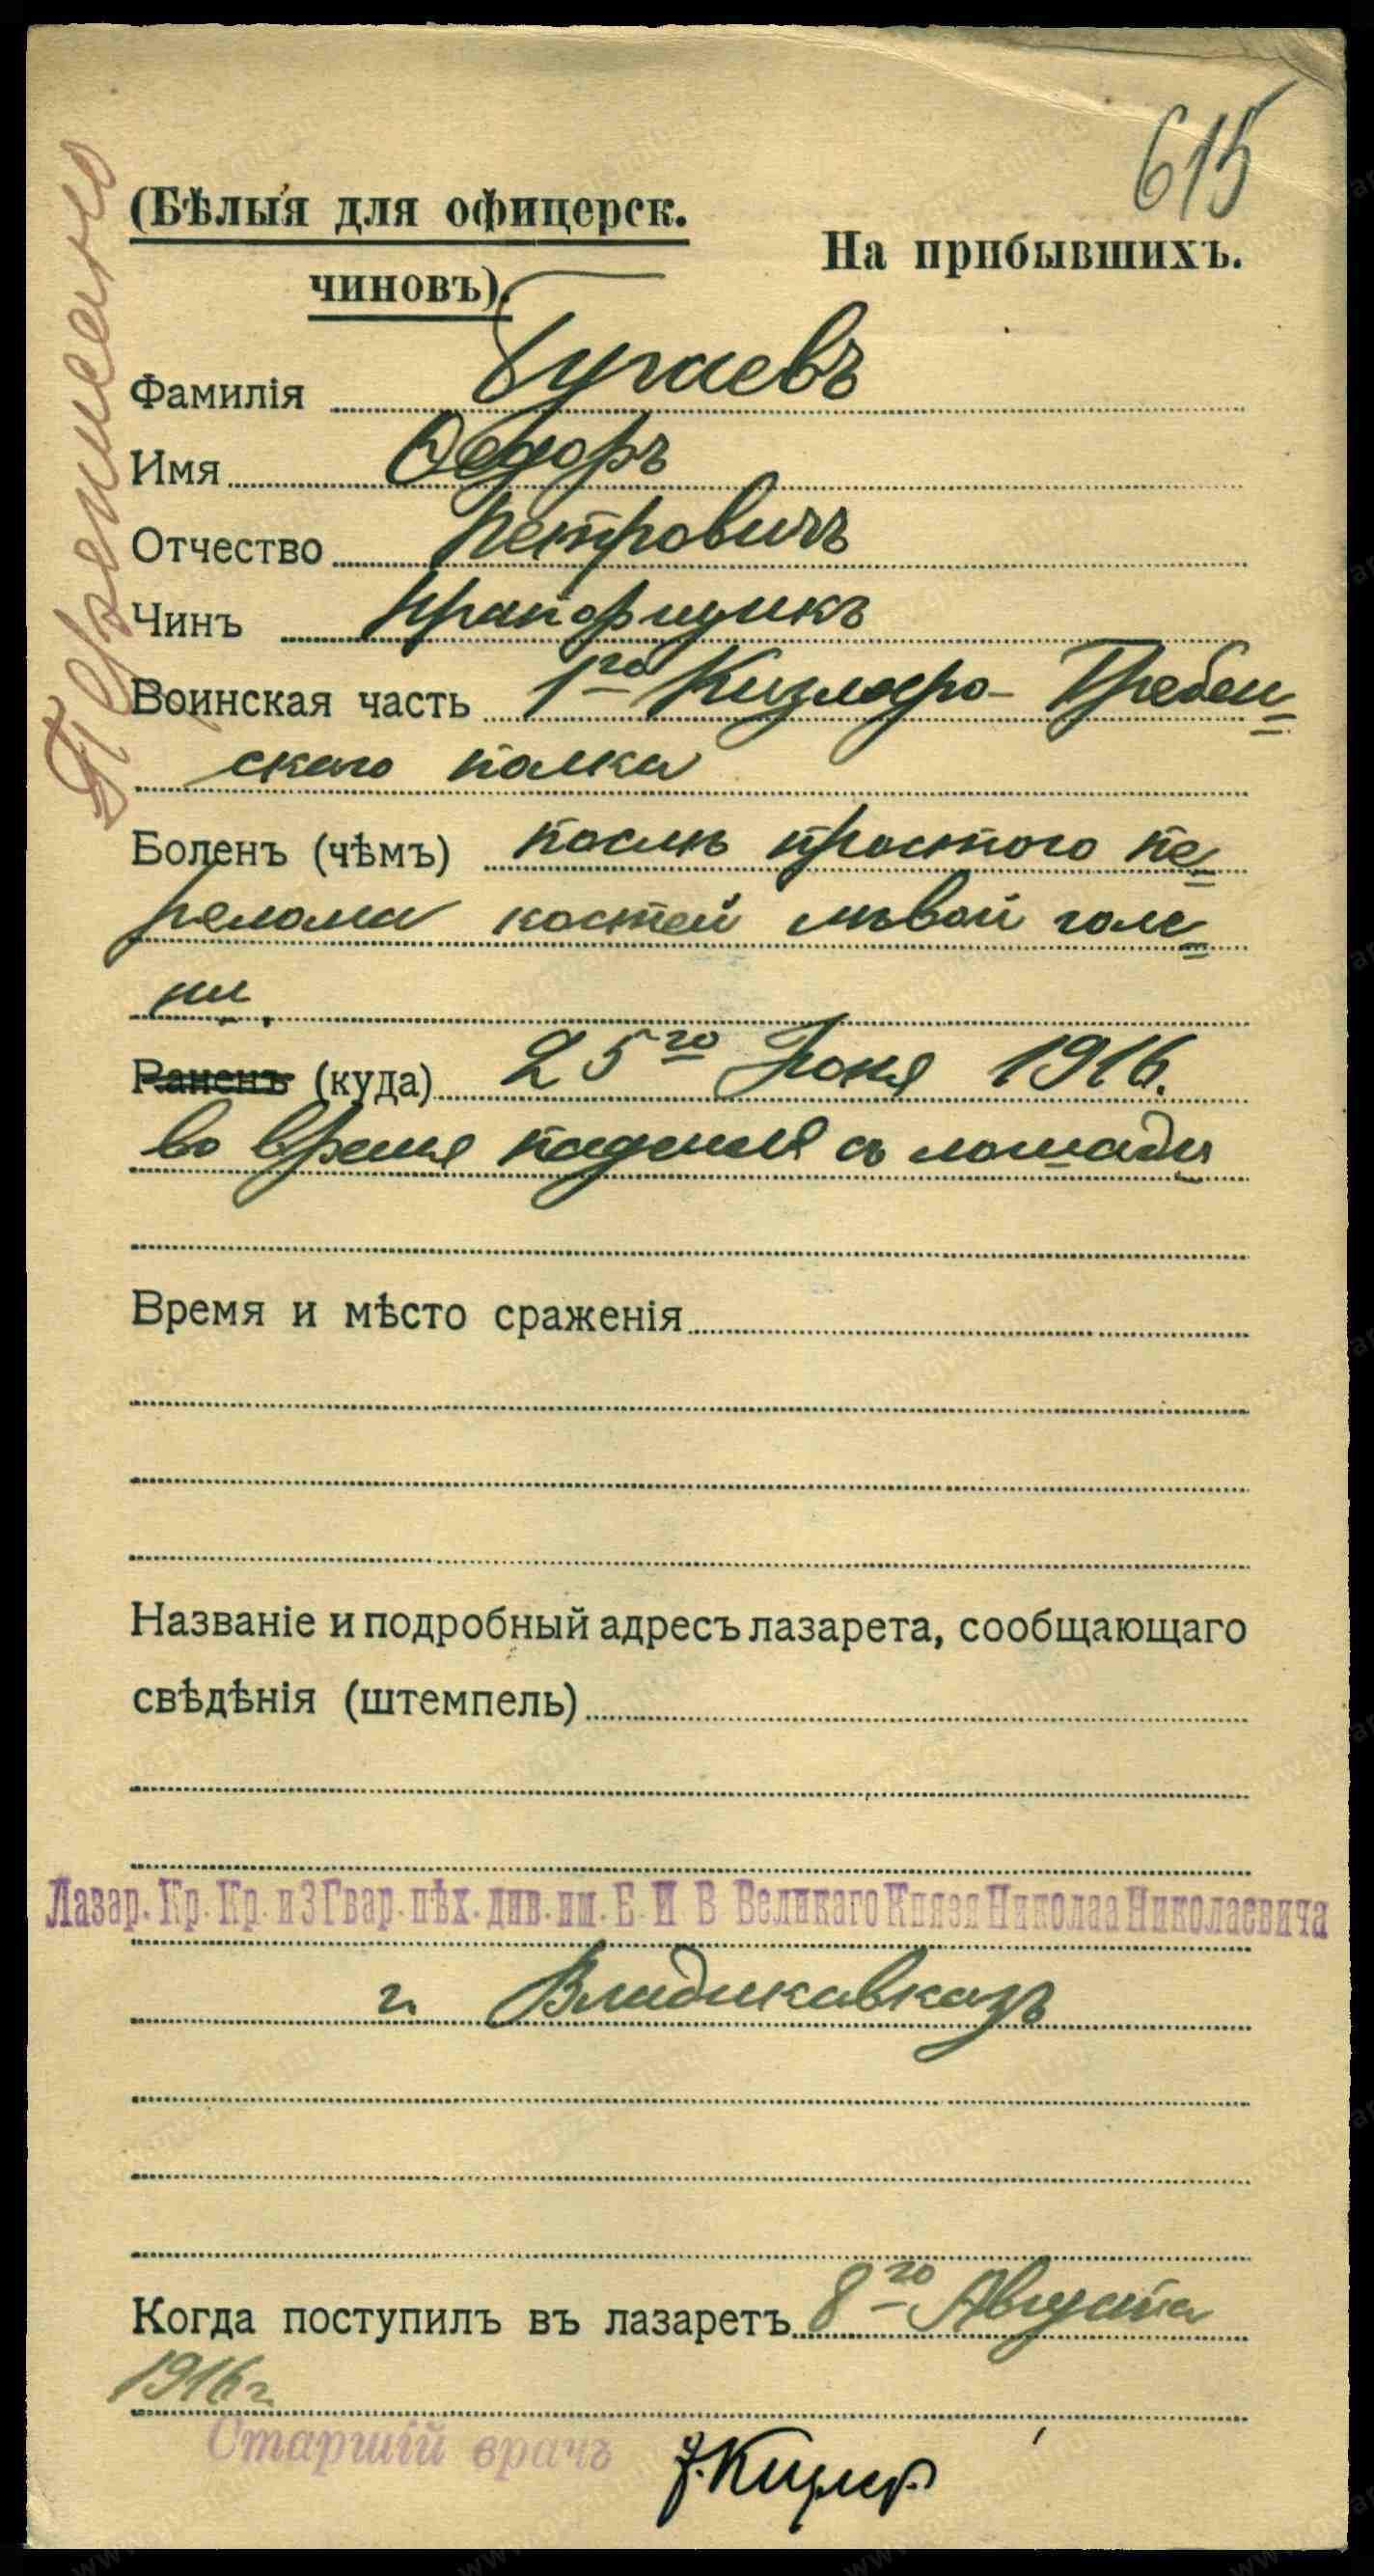 615
(Бѣлыя для офицерск.
чиновъ).
На прибывшихъ.
Перелисано
Фамилія Бугаевъ
Имя Ѳедоръ
Отчество Петровичъ
Чинъ Прапорщикъ
Воинская часть 1го Кизляро-Гребен-
скаго полка
Боленъ (чѣмъ) послѣ простого пе-
релома костей лѣвой голе-
ни
Раненъ (куда) 25го Іюня 1916.
во время паденія съ лошади
Время и мѣсто сраженія
Названіе и подробный адресъ лазарета, сообщающаго
свѣдѣнія (штемпель)
Лазар. Кр. Кр. и 3 Гвар. пѣх. див. им. Е. И В Великаго Князя Николая Николаевича
г. Владикавказъ
Когда поступилъ въ лазаретъ 8го Августа
1916 г.
Старшій врачъ